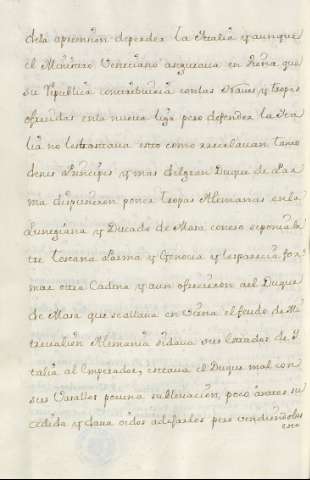 dela aprension defender la Italia y aunque
el Ministro Veneciano aseguava en Viena que
su Republica contribuiria con las Naves y tropas
ofrecidas en la nueva liga pero defender la Ita
lia no les tratava esto como rezelavan tanto
de los Principes y mas del gran Duque de Par
ma dispusieron poner tropas Alemanas en la
Lunegiana y Ducado de Masa con eso se ponia en
tre Toscana Parma y Genova y les parecia for
mar otra Cadena y aun ofrecieron al Duque
de Masa que se allava en Viena el feudo de
en Alemania si dava sus Estados de Y
talia al Emperador, estava el Duque mal con
sus Vasallos por una sublevacion, poco antes su
cedida y dava oidos al efecto pero vendiendolos